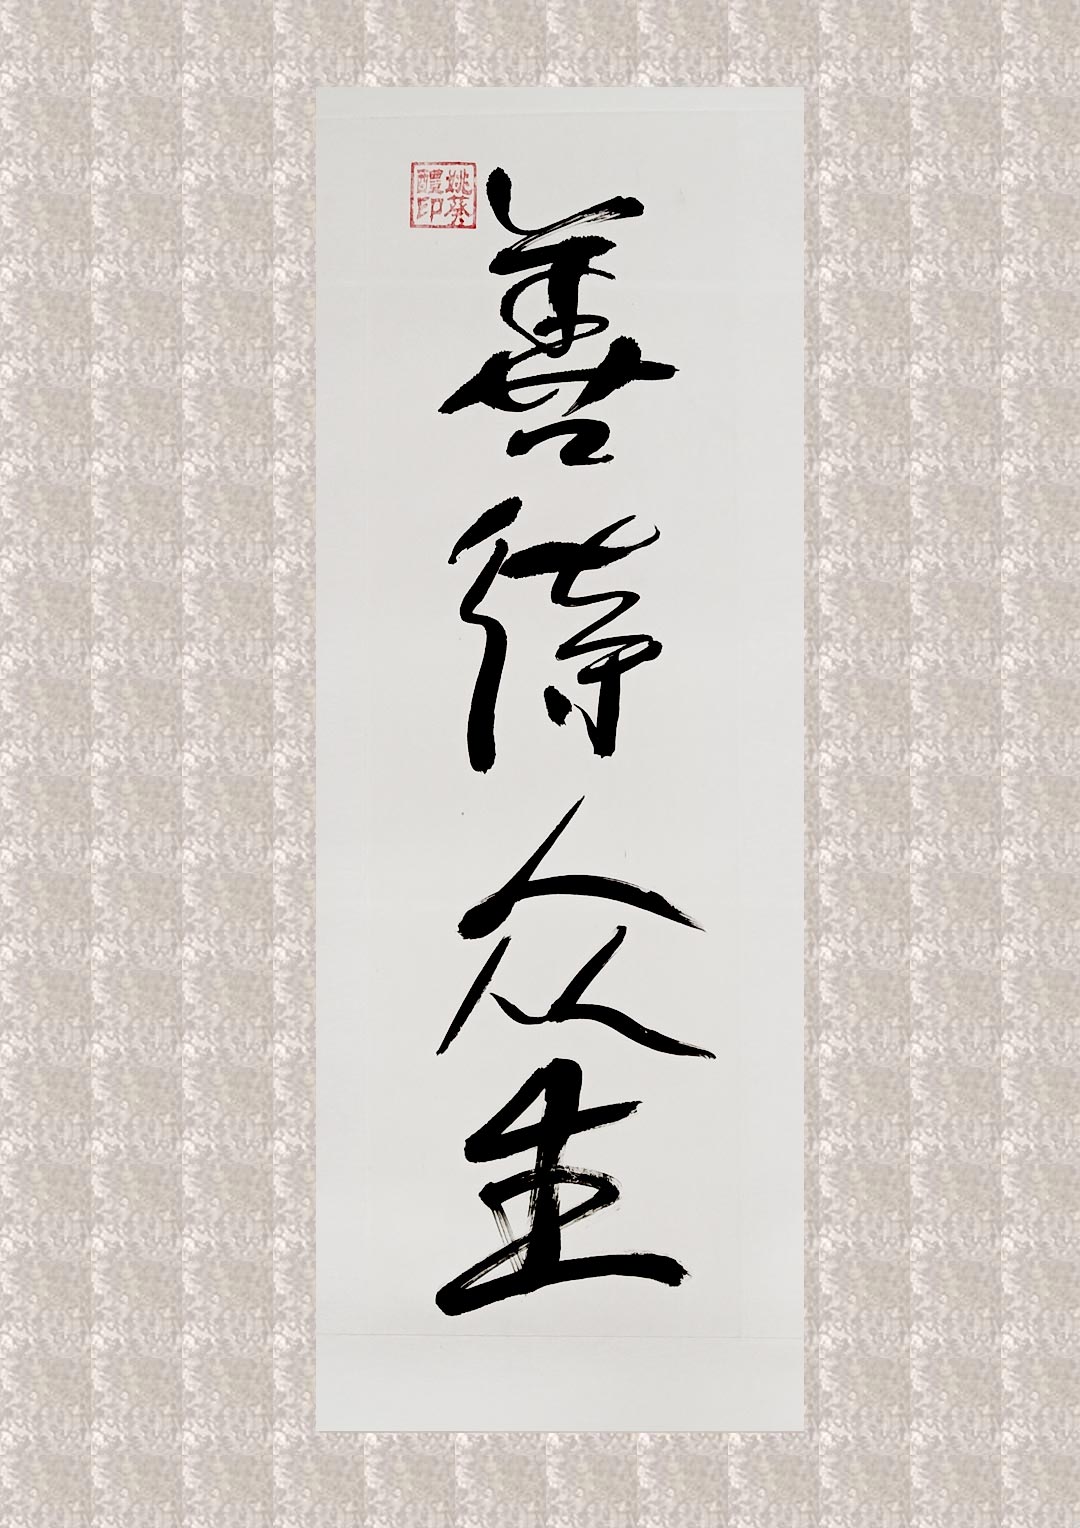 善待众生
姚葵
醴印